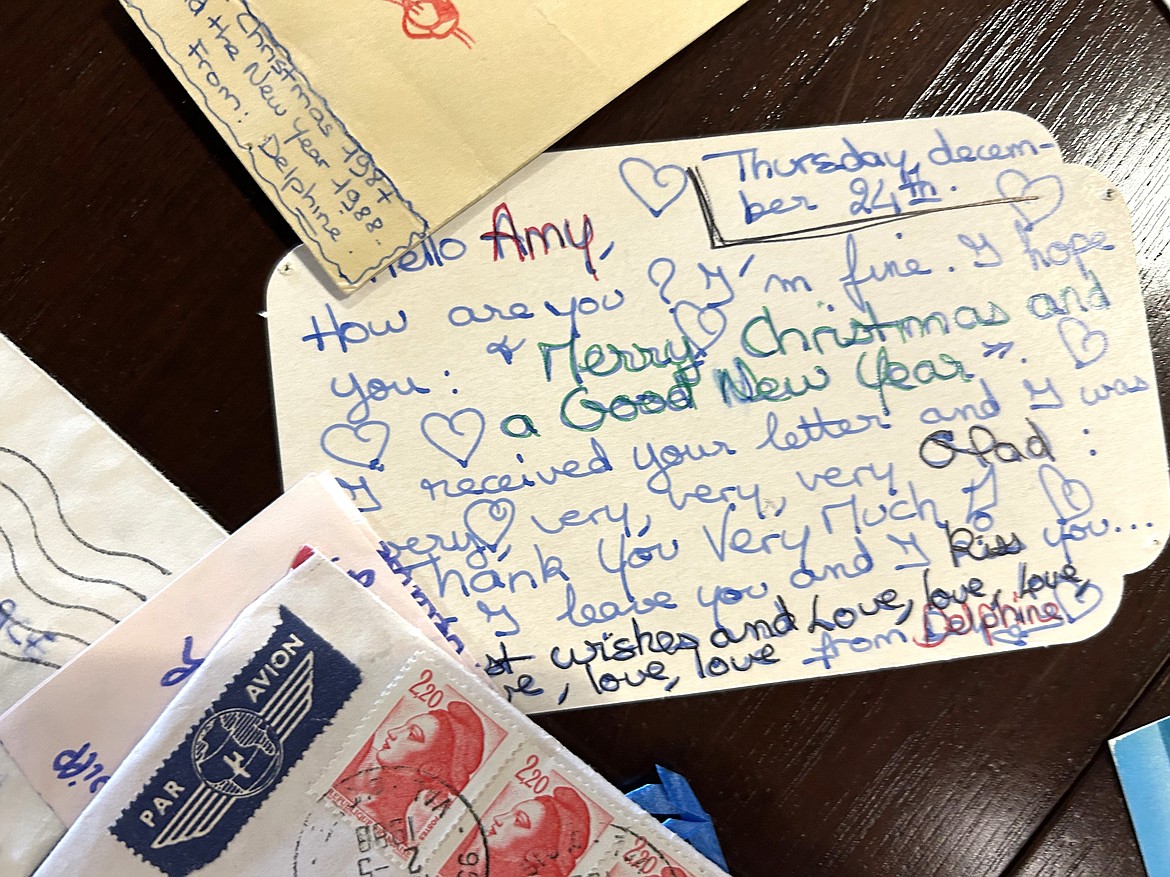 Christmas 1987
d the New Year 1988.
From: Delphine
Thursday, decem-
ber 24th.
Hello Amy,
How are you ? I'm fine. I hope
you : « Merry Christmas and
a Good New Year ».
I received your letter and I was
very very, very, very Glad :
Thank You Very Much !
I leave you and I kiss you...
st wishes and Love, love, love,
ve, love, love from Delphine
PAR AVION
2,20
2,20
2,20
POSTES
1988